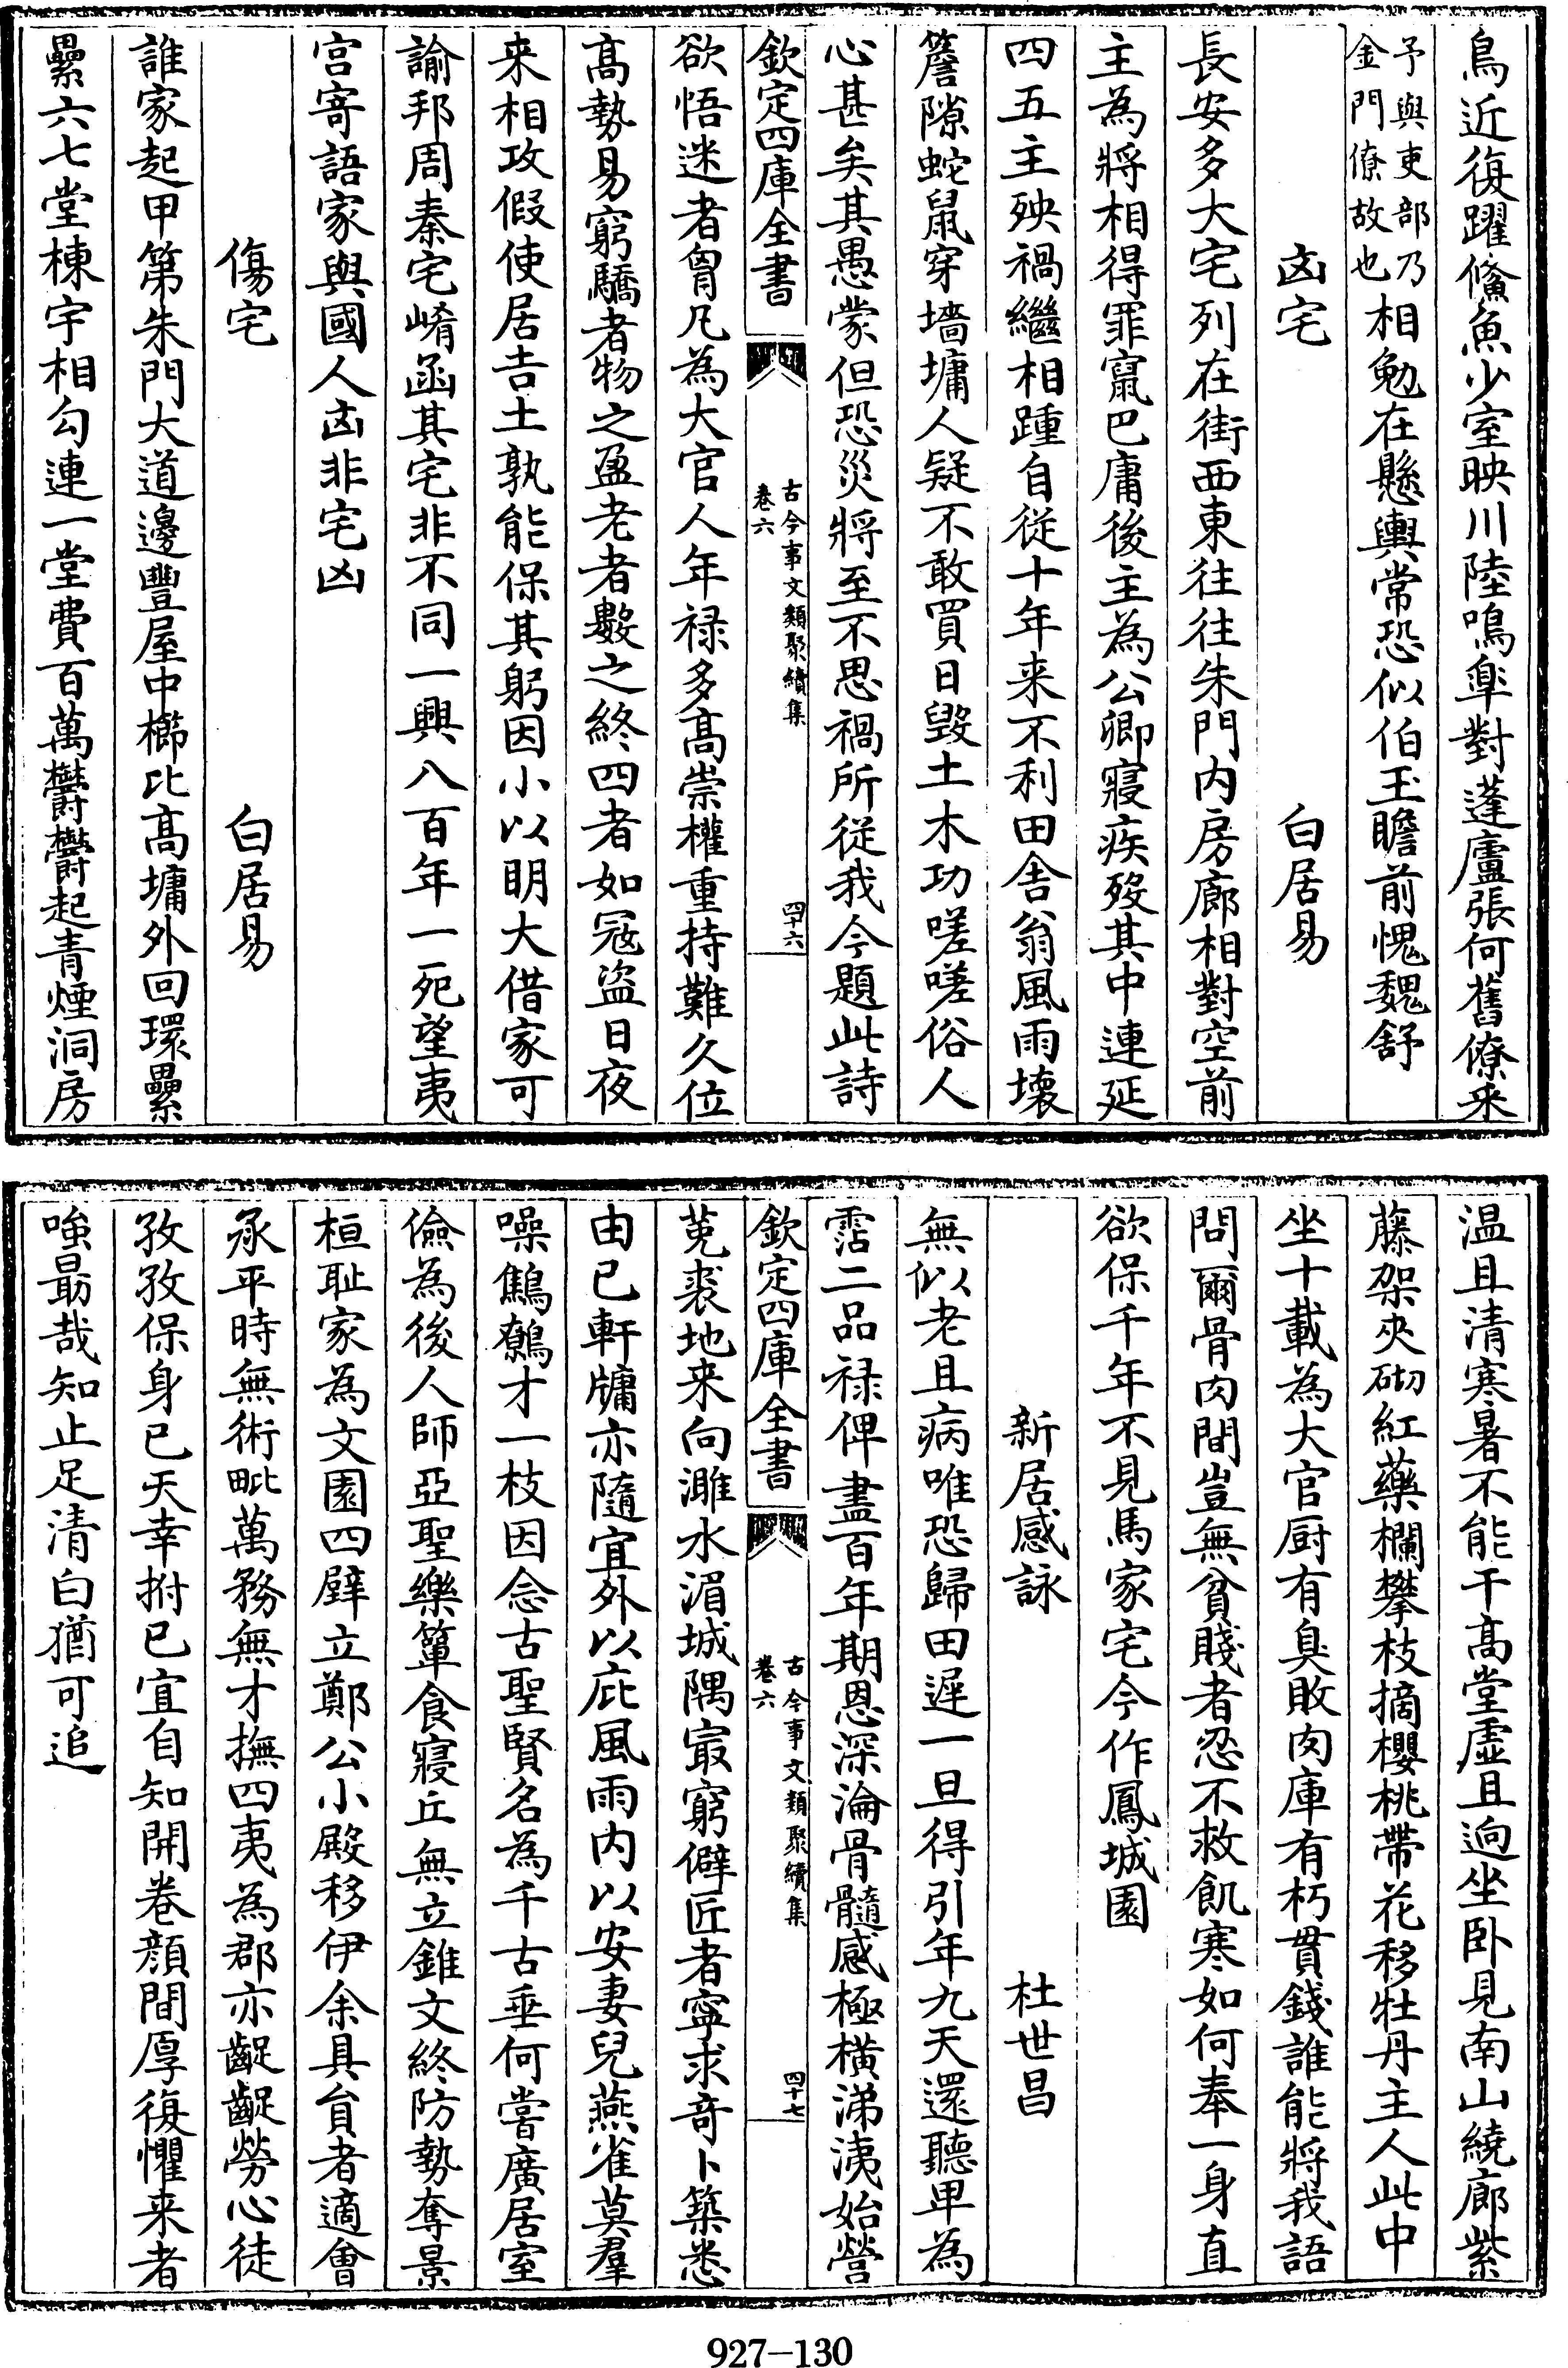 鳥近復躍鯈魚少室映川陸鳴臯對蓬廬張何舊僚寀
予與吏部乃
金門僚故也
相勉在懸輿常恐似伯玉瞻前愧魏舒
凶宅　白居易
長安多大宅列在街西東往往朱門内房廊相對空前
主為將相得罪竄巴庸後主為公卿寢疾殁其中連延
四五主殃禍繼相踵自從十年来不利田舍翁風雨壊
簷隙蛇鼠穿墻墉人疑不敢買日毁土木功嗟嗟俗人
心甚矣其愚蒙但恐災將至不思禍所從我今題此詩
欽定四庫全書
古今事文類聚續集
卷六
四十六
欲悟迷者胷凡為大官人年禄多髙崇權重持難久位
髙勢易窮驕者物之盈老者數之終四者如冦盗日夜
来相攻假使居吉土孰能保其躬因小以明大借家可
諭邦周秦宅崤函其宅非不同一興八百年一死望夷
宫寄語家與國人凶非宅凶
傷宅　白居易
誰家起甲第朱門大道邊豐屋中櫛比髙墉外回環纍
纍六七堂棟宇相勾連一堂費百萬欝欝起青煙洞房
温且清寒暑不能干髙堂虚且逈坐卧見南山繞廊紫
藤架夾砌紅藥欄攀枝摘櫻桃帶花移牡丹主人此中
坐十載為大官厨有臭敗肉庫有朽貫錢誰能將我語
問爾骨肉間豈無貧賤者忍不救飢寒如何奉一身直
欲保千年不見馬家宅今作鳳城園
新居感詠　杜世昌
無似老且病唯恐歸田遲一旦得引年九天還聽卑為
霑二品禄俾盡百年期恩深淪骨髓感極橫涕洟始營
欽定四庫全書
古今事文類聚續集
卷六
四十七
莵裘地来向濉水湄城隅㝡窮僻匠者寧求竒卜築悉
由已軒牖亦隨宜外以庇風雨内以安妻兒燕雀莫羣
噪鷦鷯才一枝因念古聖賢名為千古垂何嘗廣居室
儉為後人師亞聖樂簞食寢丘無立錐文終防勢奪景
桓耻家為文園四壁立鄭公小殿移伊余具負者適會
承平時無術毗萬務無才撫四夷為郡亦齪齪勞心徒
孜孜保身已天幸拊已宜自知開卷顔間厚復懼来者
嗤最哉知止足清白猶可追
927-130